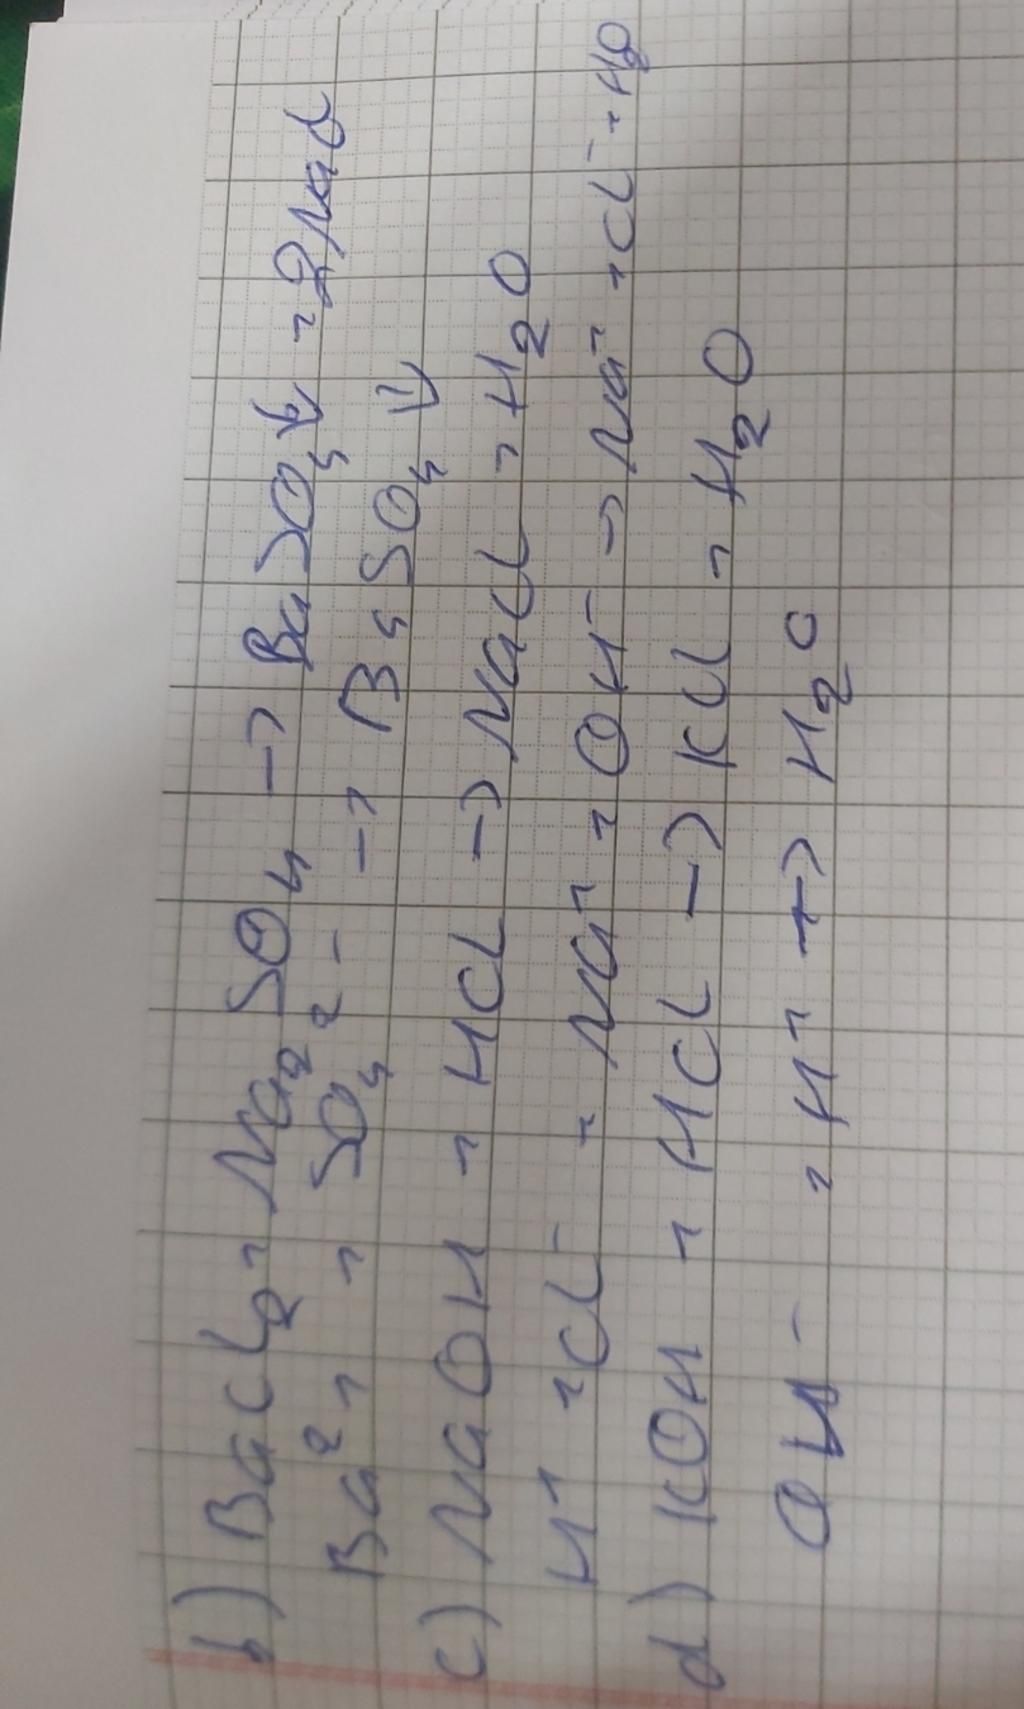 b) BaCl₂ + Na₂SO₄ → BaSO₄↓ + 2NaCl
Ba²⁺ + SO₄²⁻ → BaSO₄↓
c) NaOH + HCl → NaCl + H₂O
H⁺ + Cl⁻ + Na⁺ + OH⁻ → Na⁺ + Cl⁻ + H₂O
d) KOH + HCl → KCl + H₂O
OH⁻ + H⁺ → H₂O